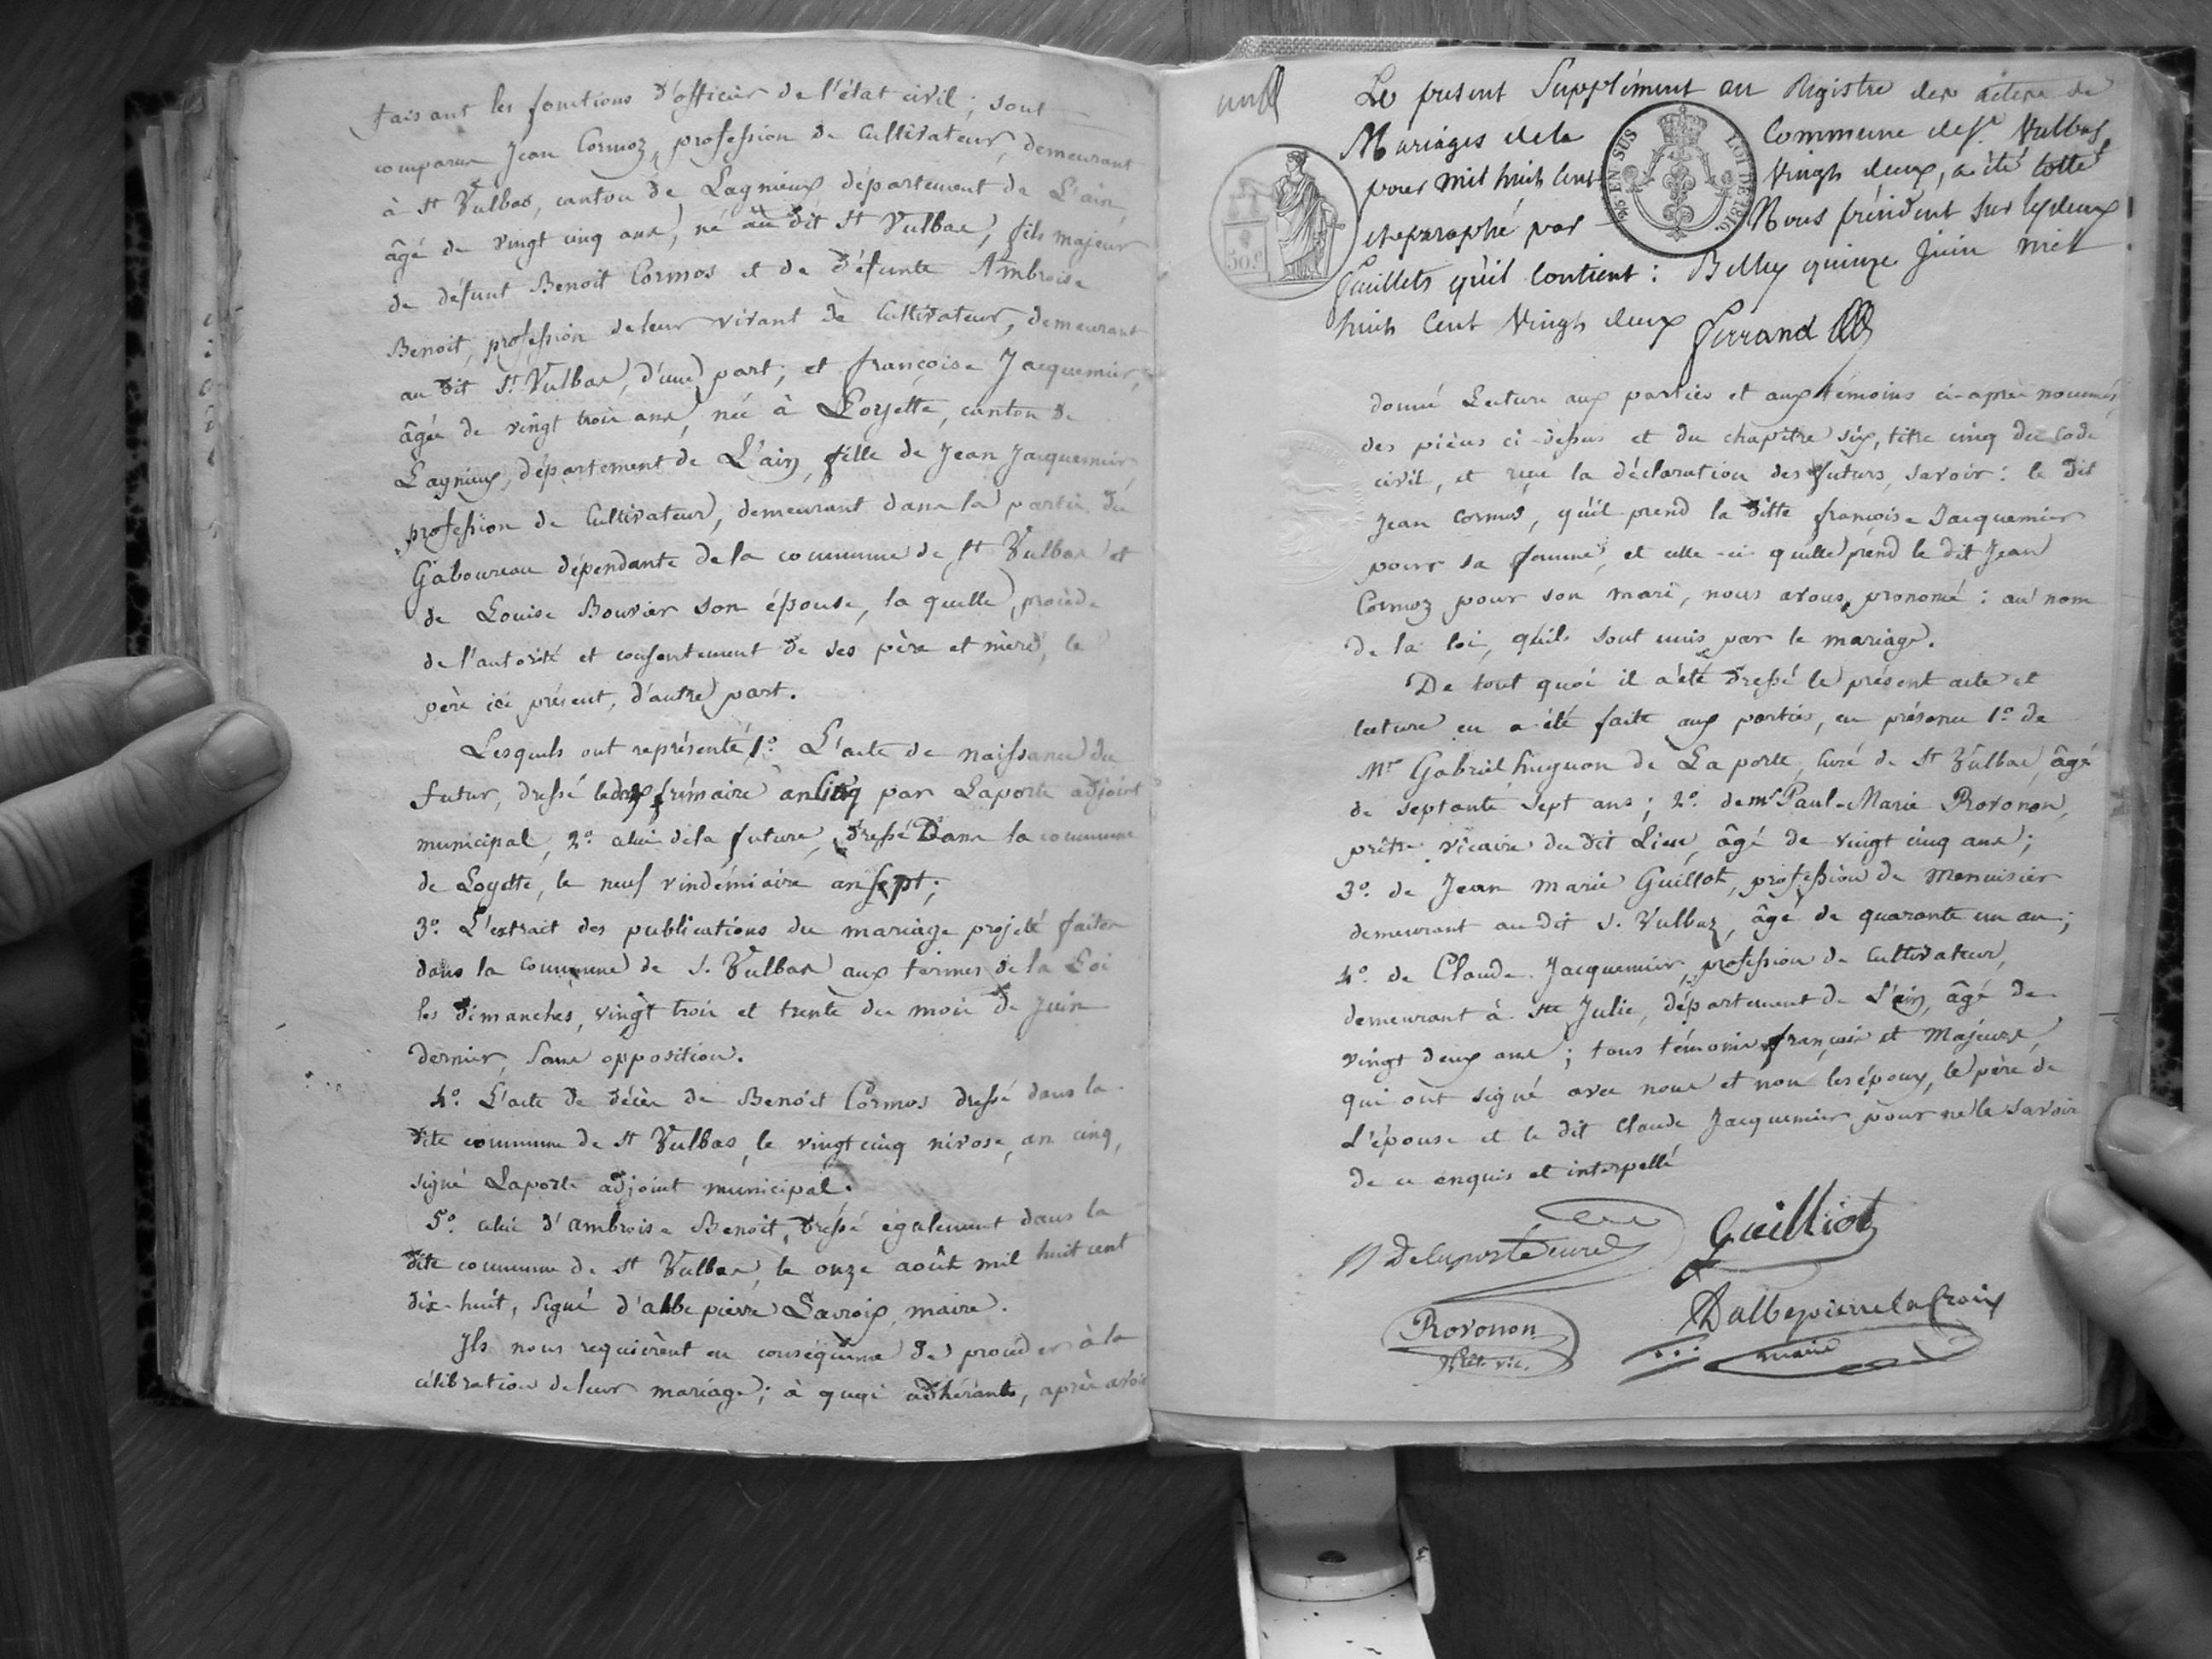 faisant les fonctions d'officier de l'état civil; sont
comparus Jean Cormoz, profession de Cultivateur, demeurant
à St Vulbas, canton de Lagnieux, département de L'ain,
âgé de vingt cinq ans, né au dit St Vulbas, fils majeur
de défunt Benoit Cormos et de défunte Ambroise
Benoit, profession de leur vivant de Cultivateur, demeurant
au dit St Vulbas, d'une part; et françoise Jacquemier,
âgée de vingt trois ans, née à Loyette, canton de
Lagnieux, département de L'ain, fille de Jean Jacquemier,
profession de Cultivateur, demeurant dans la partie du
Gaboureau dépendante de la commune de St Vulbas et
de Louise Bouvier son épouse, la quelle procède
de l'autorité et consentement de ses père et mère, le
père ici présent, d'autre part.
Lesquels ont représenté 1º L'acte de naissance du
futur, dressé le frimaire an Cinq par Laporte adjoint
municipal, 2º celui de la future, dressé Dans la commune
de Loyette, le neuf vindémiaire an sept;
3º L'extrait des publications du mariage projeté faites
dans la commune de S. Vulbas aux termes de la Loi
les dimanches, vingt trois et trente du mois de Juin
dernier, sans opposition.
4º L'acte de décès de Benoit Cormos dressé dans la
dite commune de St Vulbas, le vingt cinq nivose, an cinq,
signé Laporte adjoint municipal.
5º celui d'ambroise Benoit, dressé également dans la
dite commune de St Vulbas, le onze août mil huit cent
dix-huit, signé d'albepierre Lacroix, maire.
Ils nous requièrent en conséquence de procéder à la
célébration de leur mariage; à quoi adhérants, après avoir
Le present Supplément au Registre des actes de
Mariages de la Commune de St Vulbas
pour mil huit cent Vingt deux, a été cotté
et paraphé par Nous président sur les deux
feuillets qu'il contient: Belley quinze Juin mil
huit Cent Vingt deux Ferrand
5/10 EN SUS LOI DE 1816.
50.c
donné Lecture aux parties et aux témoins ci-après nommés,
des pièces ci-dessus et du chapitre six, titre cinq du Code
civil, et reçu la déclaration des futurs, savoir: le dit
Jean Cormos, qu'il prend la ditte françoise Jacquemier
pour sa femme, et celle-ci qu'elle prend le dit Jean
Cormoz pour son mari, nous avons prononcé: au nom
de la loi, qu'ils sont unis par le mariage.
De tout quoi il a été dressé le présent acte et
lecture en a été faite aux parties, en présence 1º de
Mr Gabriel huguon de Laporte, Curé de St Vulbas, âgé
de septante sept ans; 2º de mr Paul-Marie Rovonon,
prêtre vicaire du dit Lieu, âgé de vingt cinq ans;
3º de Jean Marie Guillot, profession de Menuisier
demeurant au dit S. Vulbaz, âgé de quarante un an;
4º de Claude Jacquemier, profession de Cultivateur,
demeurant à Ste Julie, département de L'ain, âgé de
vingt deux ans; tous témoins françois et Majeurs,
qui ont signé avec nous et non les époux, le père de
L'épouse et le dit Claude Jacquemier pour ne le savoir
de ce enquis et interpellé
Delaporte curé
Guilliot
Rovonon
Prêt. vic.
Dalbepierre lacroix
maire